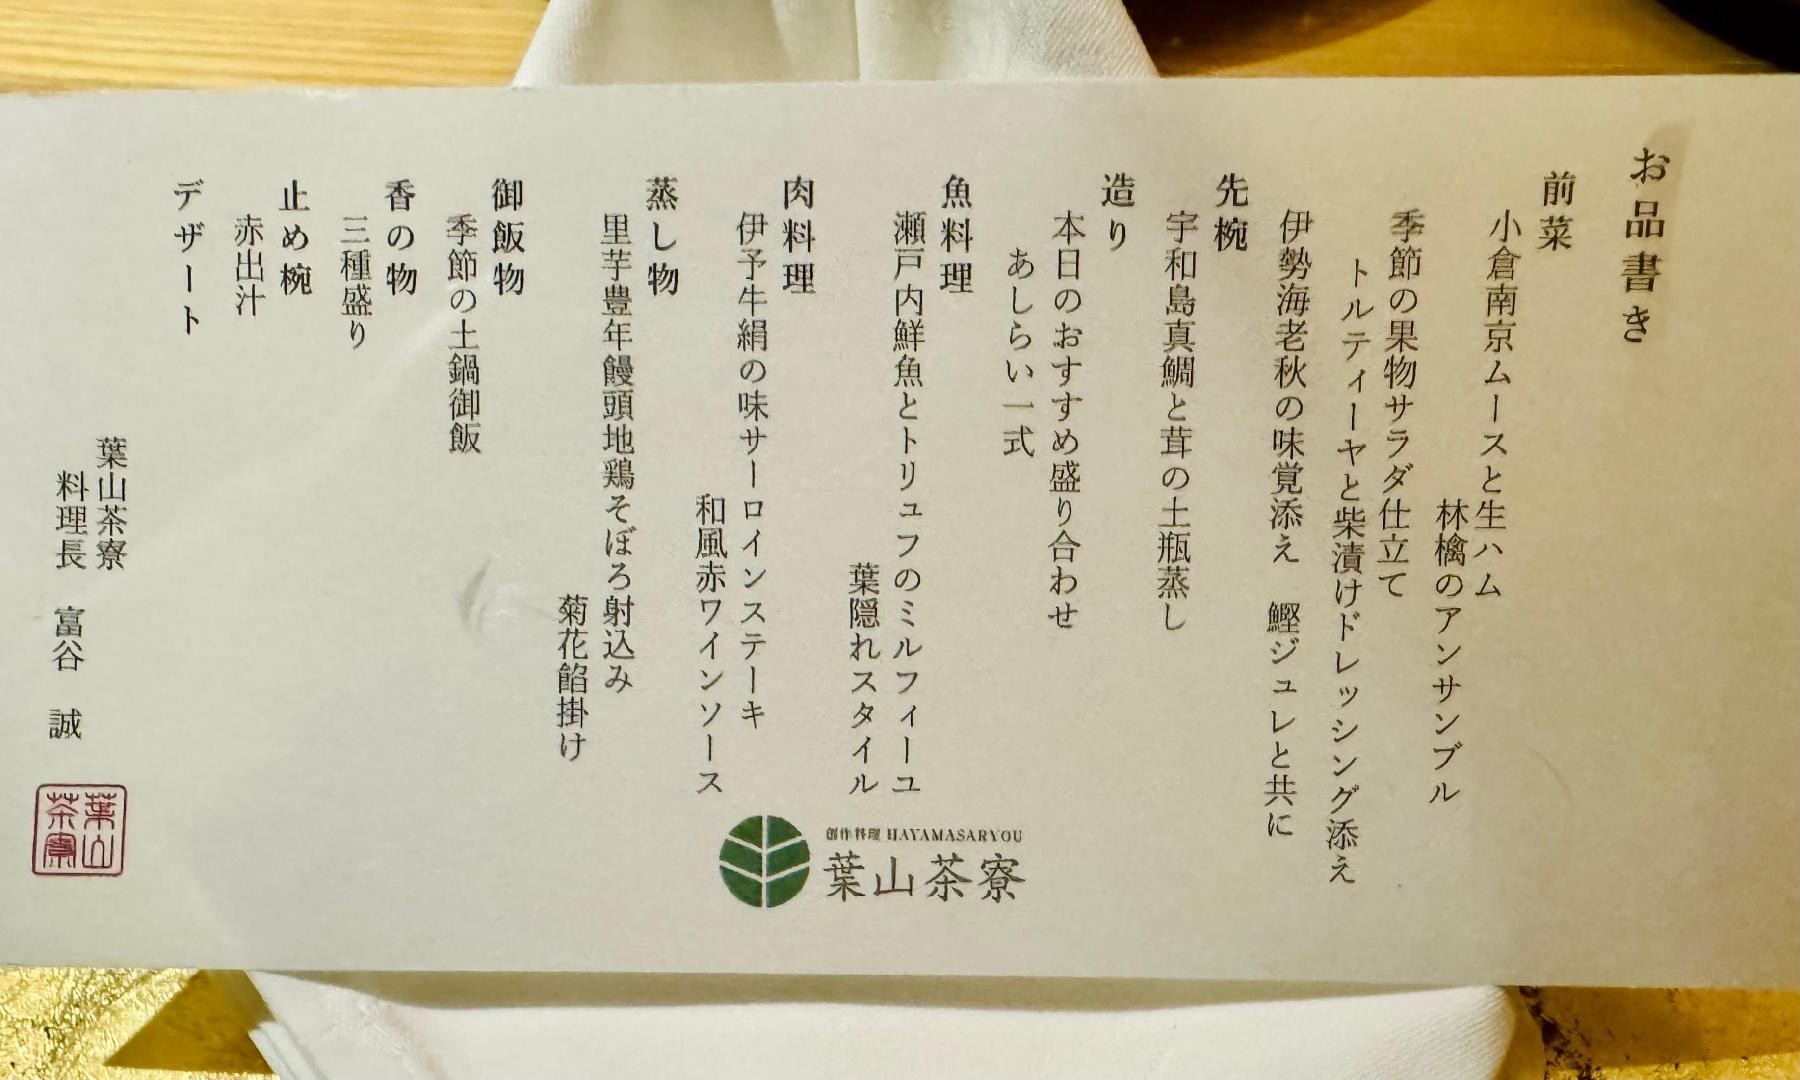 お品書き
前菜
小倉南京ムースと生ハム
林檎のアンサンブル
季節の果物サラダ仕立て
トルティーヤと柴漬けドレッシング添え
伊勢海老秋の味覚添え　鰹ジュレと共に
先椀
宇和島真鯛と茸の土瓶蒸し
造り
本日のおすすめ盛り合わせ
あしらい一式
魚料理
瀬戸内鮮魚とトリュフのミルフィーユ
葉隠れスタイル
肉料理
伊予牛絹の味サーロインステーキ
和風赤ワインソース
蒸し物
里芋豊年饅頭地鶏そぼろ射込み
菊花餡掛け
御飯物
季節の土鍋御飯
香の物
三種盛り
止め椀
赤出汁
デザート
葉山茶寮
料理長　富谷　誠
葉山
茶寮
創作料理 HAYAMASARYOU
葉山茶寮